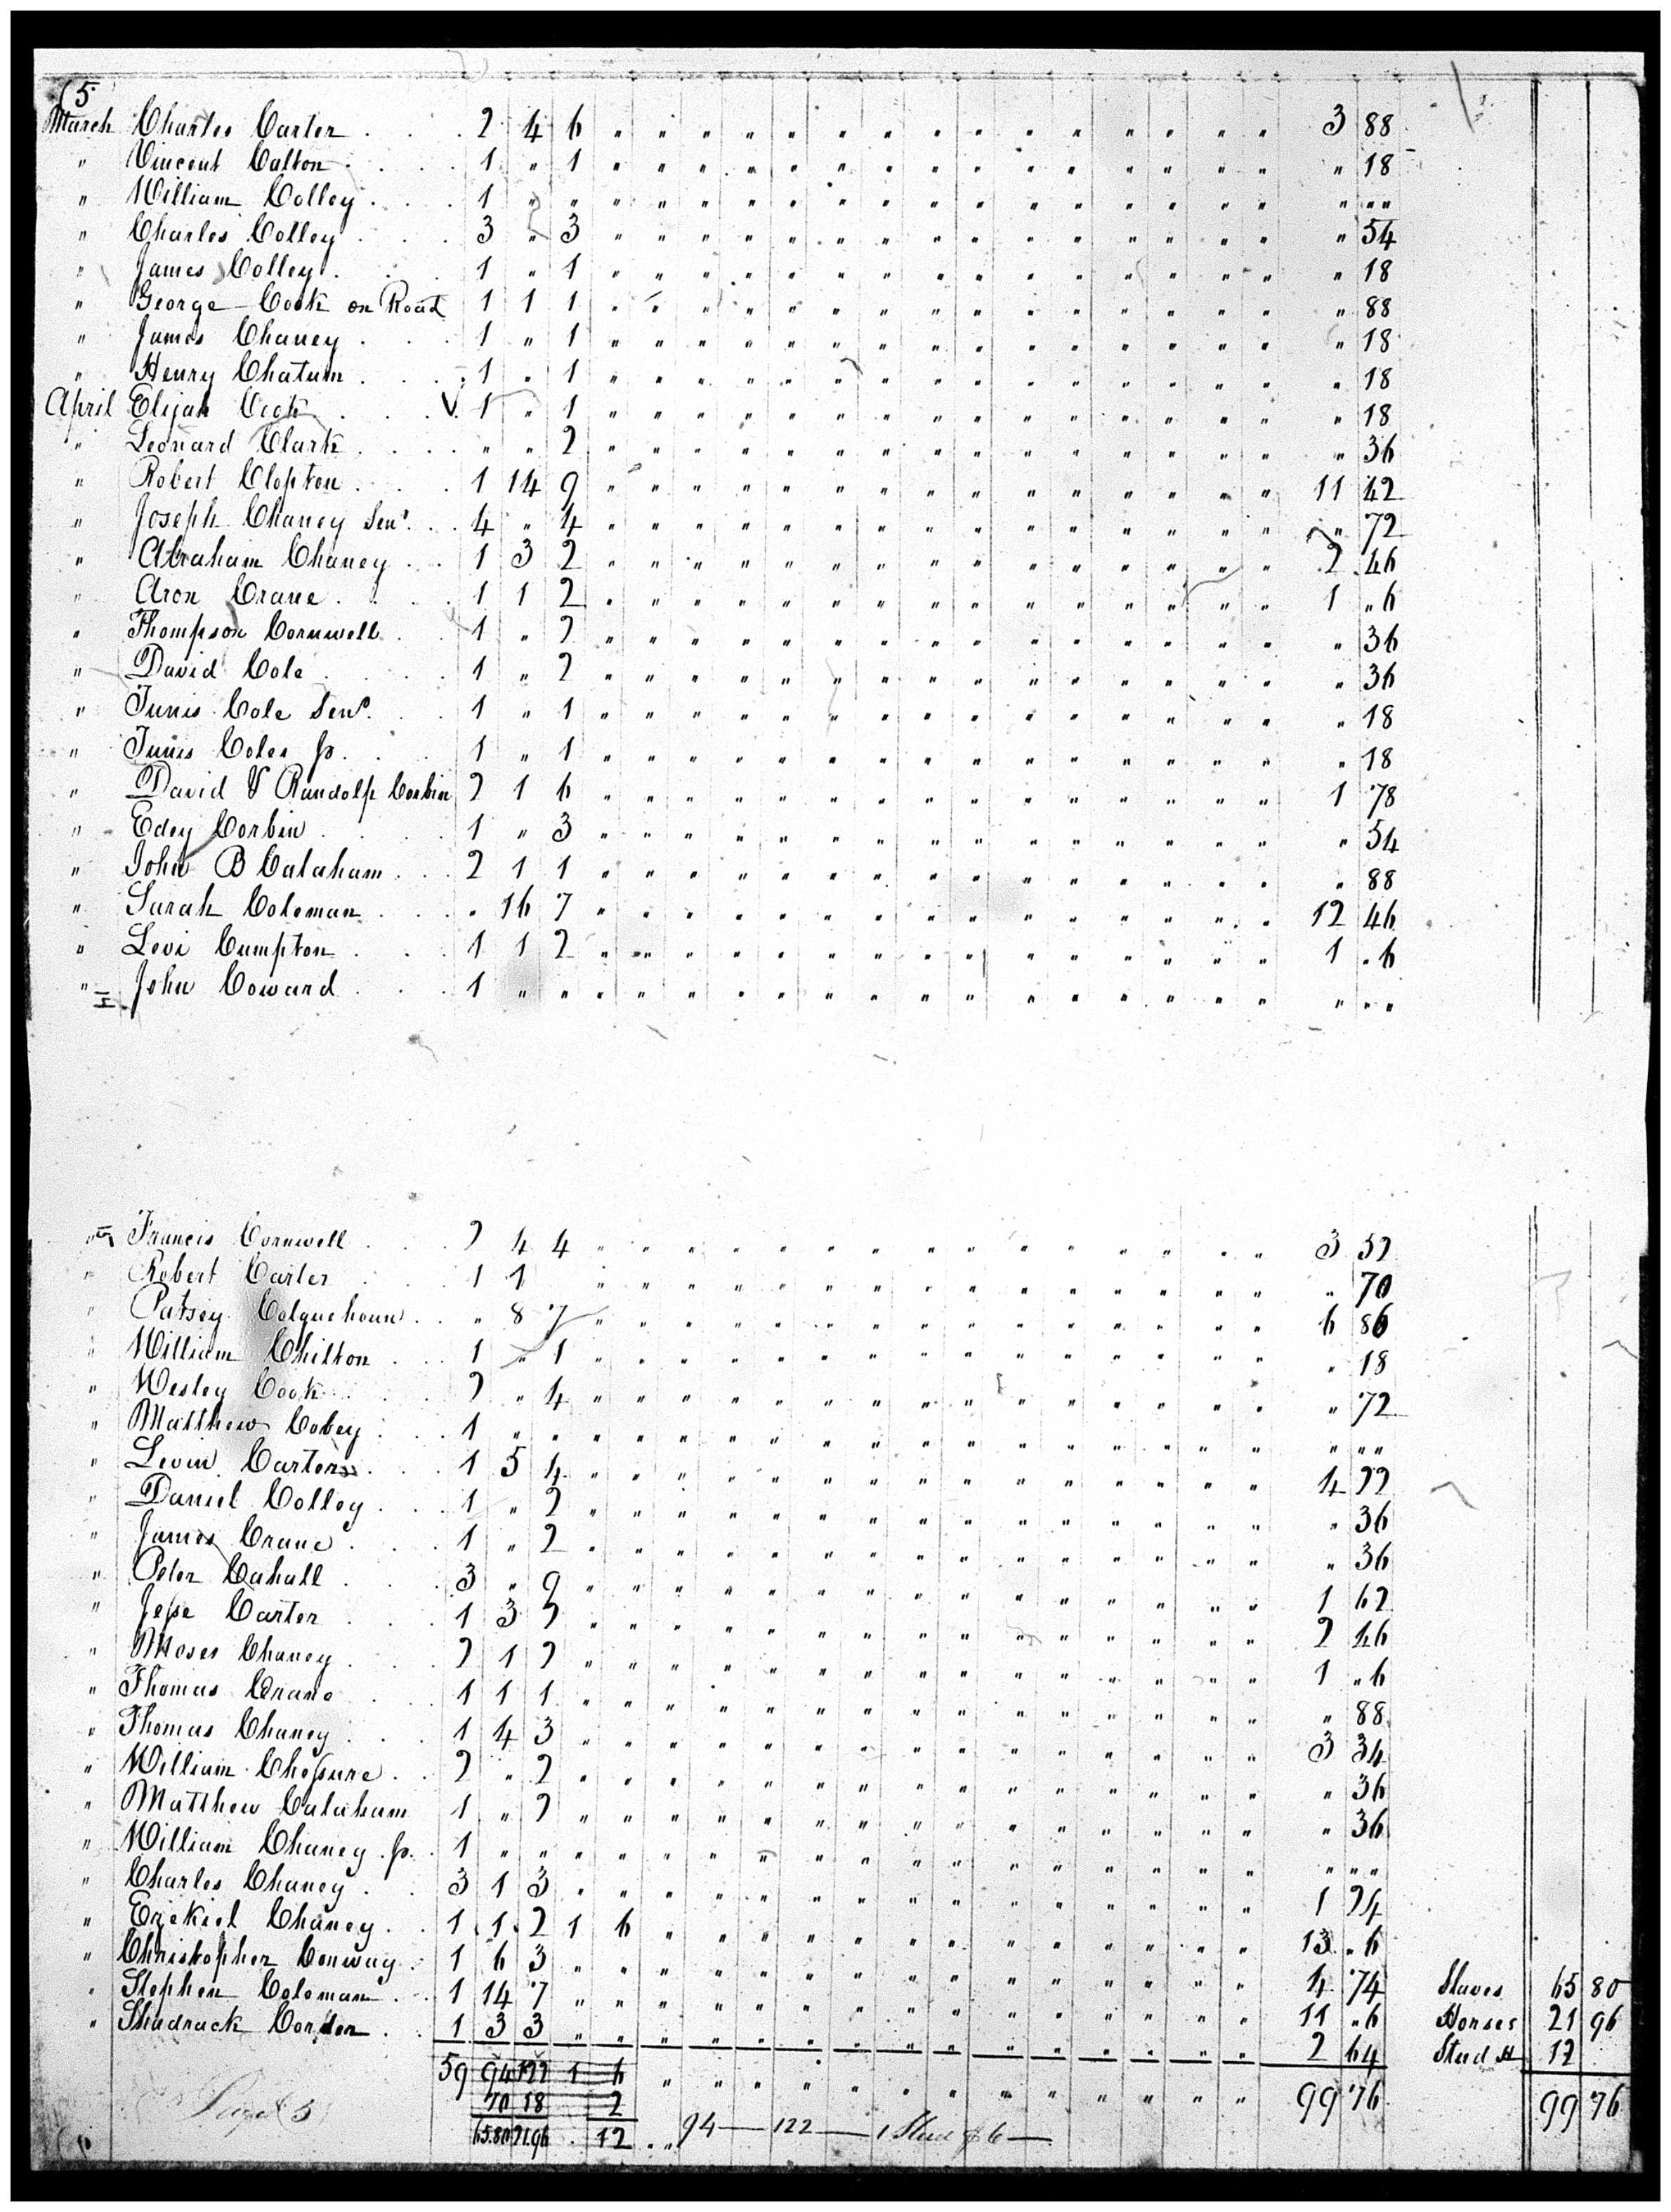 (5
March Charles Carter . . . 2 4 6 " " " " " " " " " " " " " " " 3 88
" Vincent Calton . . . 1 " 1 " " " " " " " " " " " " " " " " 18
" William Colley . . . 1 " " " " " " " " " " " " " " " " " " " "
" Charles Colley . . . 3 " 3 " " " " " " " " " " " " " " " " 54
" James Colley . . . 1 " 1 " " " " " " " " " " " " " " " " 18
" George Cook on Road 1 1 1 " " " " " " " " " " " " " " " " 88
" James Chaney . . . 1 " 1 " " " " " " " " " " " " " " " " 18
" Henry Chatum . . . 1 " 1 " " " " " " " " " " " " " " " " 18
April Elijah Cook . . V. 1 " 1 " " " " " " " " " " " " " " " " 18
" Leonard Clark . . . " " 2 " " " " " " " " " " " " " " " " 36
" Robert Clopton . . . 1 14 9 " " " " " " " " " " " " " " " 11 42
" Joseph Chaney Senr. . . 4 " 4 " " " " " " " " " " " " " " " " 72
" Abraham Chaney . . 1 3 2 " " " " " " " " " " " " " " " 2 46
" Aron Crane . . . 1 1 2 " " " " " " " " " " " " " " " 1 " 6
" Thompson Cornwell . . 1 " 2 " " " " " " " " " " " " " " " " 36
" David Cole . . . 1 " 2 " " " " " " " " " " " " " " " " 36
" Tunis Cole Senr. . . 1 " 1 " " " " " " " " " " " " " " " " 18
" Tunis Coles Jr. . . 1 " 1 " " " " " " " " " " " " " " " " 18
" David & Randolp Corbin 2 1 6 " " " " " " " " " " " " " " " 1 78
" Edey Corbin . . . 1 " 3 " " " " " " " " " " " " " " " " 54
" John B Calaham . . . 2 1 1 " " " " " " " " " " " " " " " " 88
" Sarah Coleman . . . " 16 7 " " " " " " " " " " " " " " " 12 46
" Levi Cumpton . . . 1 1 2 " " " " " " " " " " " " " " " 1 " 6
" John Coward . . . 1 " " " " " " " " " " " " " " " " " " " "
" Francis Cornwell . . . 2 4 4 " " " " " " " " " " " " " " " 3 52
" Robert Carter . . . 1 1 " " " " " " " " " " " " " " " " 70
" Patsey Colquehoun . . " 8 7 " " " " " " " " " " " " " " " 6 86
" William Chilton . . 1 " 1 " " " " " " " " " " " " " " " " 18
" Wesley Cook . . . 2 " 4 " " " " " " " " " " " " " " " " 72
" Matthew Cobey . . . 1 " " " " " " " " " " " " " " " " " " " "
" Levin Carter . . . 1 5 4 " " " " " " " " " " " " " " " 4 22
" Daniel Colley . . . 1 " 2 " " " " " " " " " " " " " " " " 36
" James Crane . . . 1 " 2 " " " " " " " " " " " " " " " " 36
" Peter Cahall . . . 3 " 9 " " " " " " " " " " " " " " " 1 62
" Jesse Carter . . . 1 3 2 " " " " " " " " " " " " " " " 2 46
" Moses Chaney . . . 2 1 2 " " " " " " " " " " " " " " " 1 " 6
" Thomas Crane . . . 1 1 1 " " " " " " " " " " " " " " " " 88
" Thomas Chaney . . . 1 4 3 " " " " " " " " " " " " " " " 3 34
" William Chessure . . 2 " 2 " " " " " " " " " " " " " " " " 36
" Matthew Calaham 1 " 2 " " " " " " " " " " " " " " " " 36
" William Chaney Jr. . 1 " " " " " " " " " " " " " " " " " " " "
" Charles Chaney . . 3 1 3 " " " " " " " " " " " " " " " 1 24
" Ezekiel Chaney . . 1 1 2 1 6 " " " " " " " " " " " " " 13 " 6
" Christopher Conway . 1 6 3 " " " " " " " " " " " " " " " 4 74 Slaves 65 80
" Stephen Coleman . . 1 14 7 " " " " " " " " " " " " " " " 11 " 6 Horses 21 96
" Shadrack Corder . . 1 3 3 " " " " " " " " " " " " " " " 2 64 Stud H 12
59 94 122 1 6 " " " " " " " " " " " " " 99 76 99 76
70 18 2
Page 5 65.80 21.96 12 " " 94 — 122 — 1 Stud $6 —